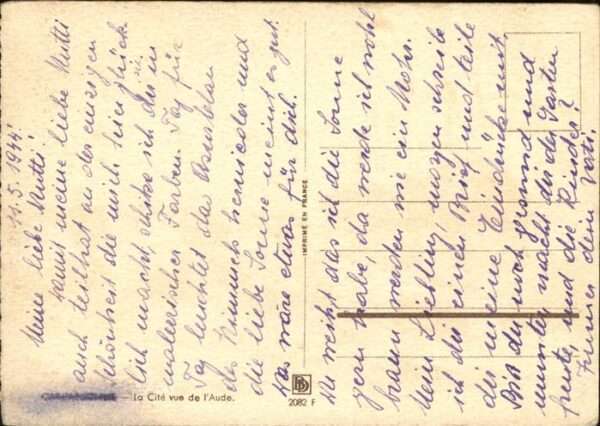 11.5.1944!
Meine liebe Mutti!
Damit meine liebe Mutti
auch teilhat an der einzigen
Schönheit die mich hier glück-
lich macht, schike ich dir ein
malerischer Farben. Tag für
Tag leuchtet das Azurblau
des Himmels hernieder und
die liebe Sonne meint es gut.
Das wäre etwas für dich.
Du weißt das ich die Sonne
gern habe, da werde ich wohl
braun werden wie ein Mohr.
Mein Liebling, morgen schreibe
ich dir einen Brief und teile
dir meine Eindrücke mit
Bist du noch gesund und
munter, macht dir der Garten
freude, und die Kinder?
Immer dein Vati.
CARCASSONNE — La Cité vue de l'Aude.
IMPRIMÉ EN FRANCE
2082 F